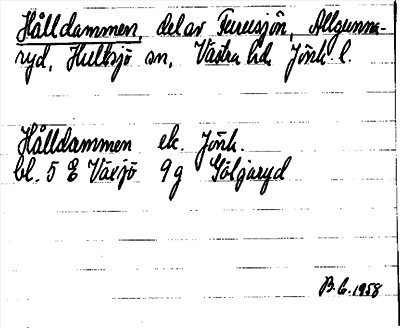 Hålldammen, del av Furusjön, Allgunna-
ryd, Hultsjö sn, Västra hd. Jönk. l.
Hålldammen ek. Jönk.
bl. 5 E Växjö 9g Göljaryd
B.G. 1958